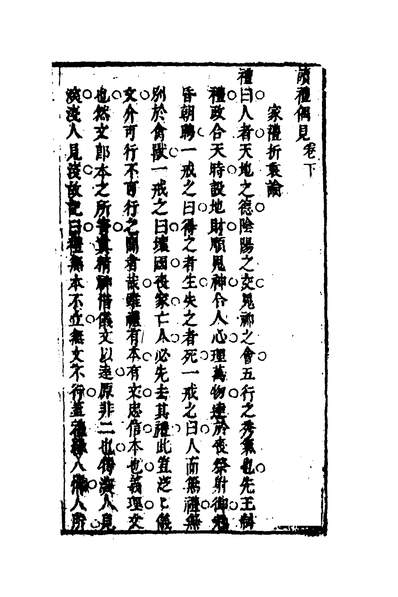 讀禮偶見卷下
家禮折衷論
禮曰人者天地之德陰陽之交鬼神之會五行之秀氣也先王制
禮政合天時設地財順鬼神合人心理萬物達於喪祭射御冠
昏朝聘一戒之曰得之者生失之者死一戒之曰人而無禮無
別於禽獸一戒之曰壞國喪家亡人必先去其禮此豈泛泛儀
文介可行不可行之閒者哉雖禮有本有文忠信本也義理文
也然文即本之所精神借儀文以達原非二也深人見
深淺人見淺故記曰禮無本不立無文不行葢禮人人所